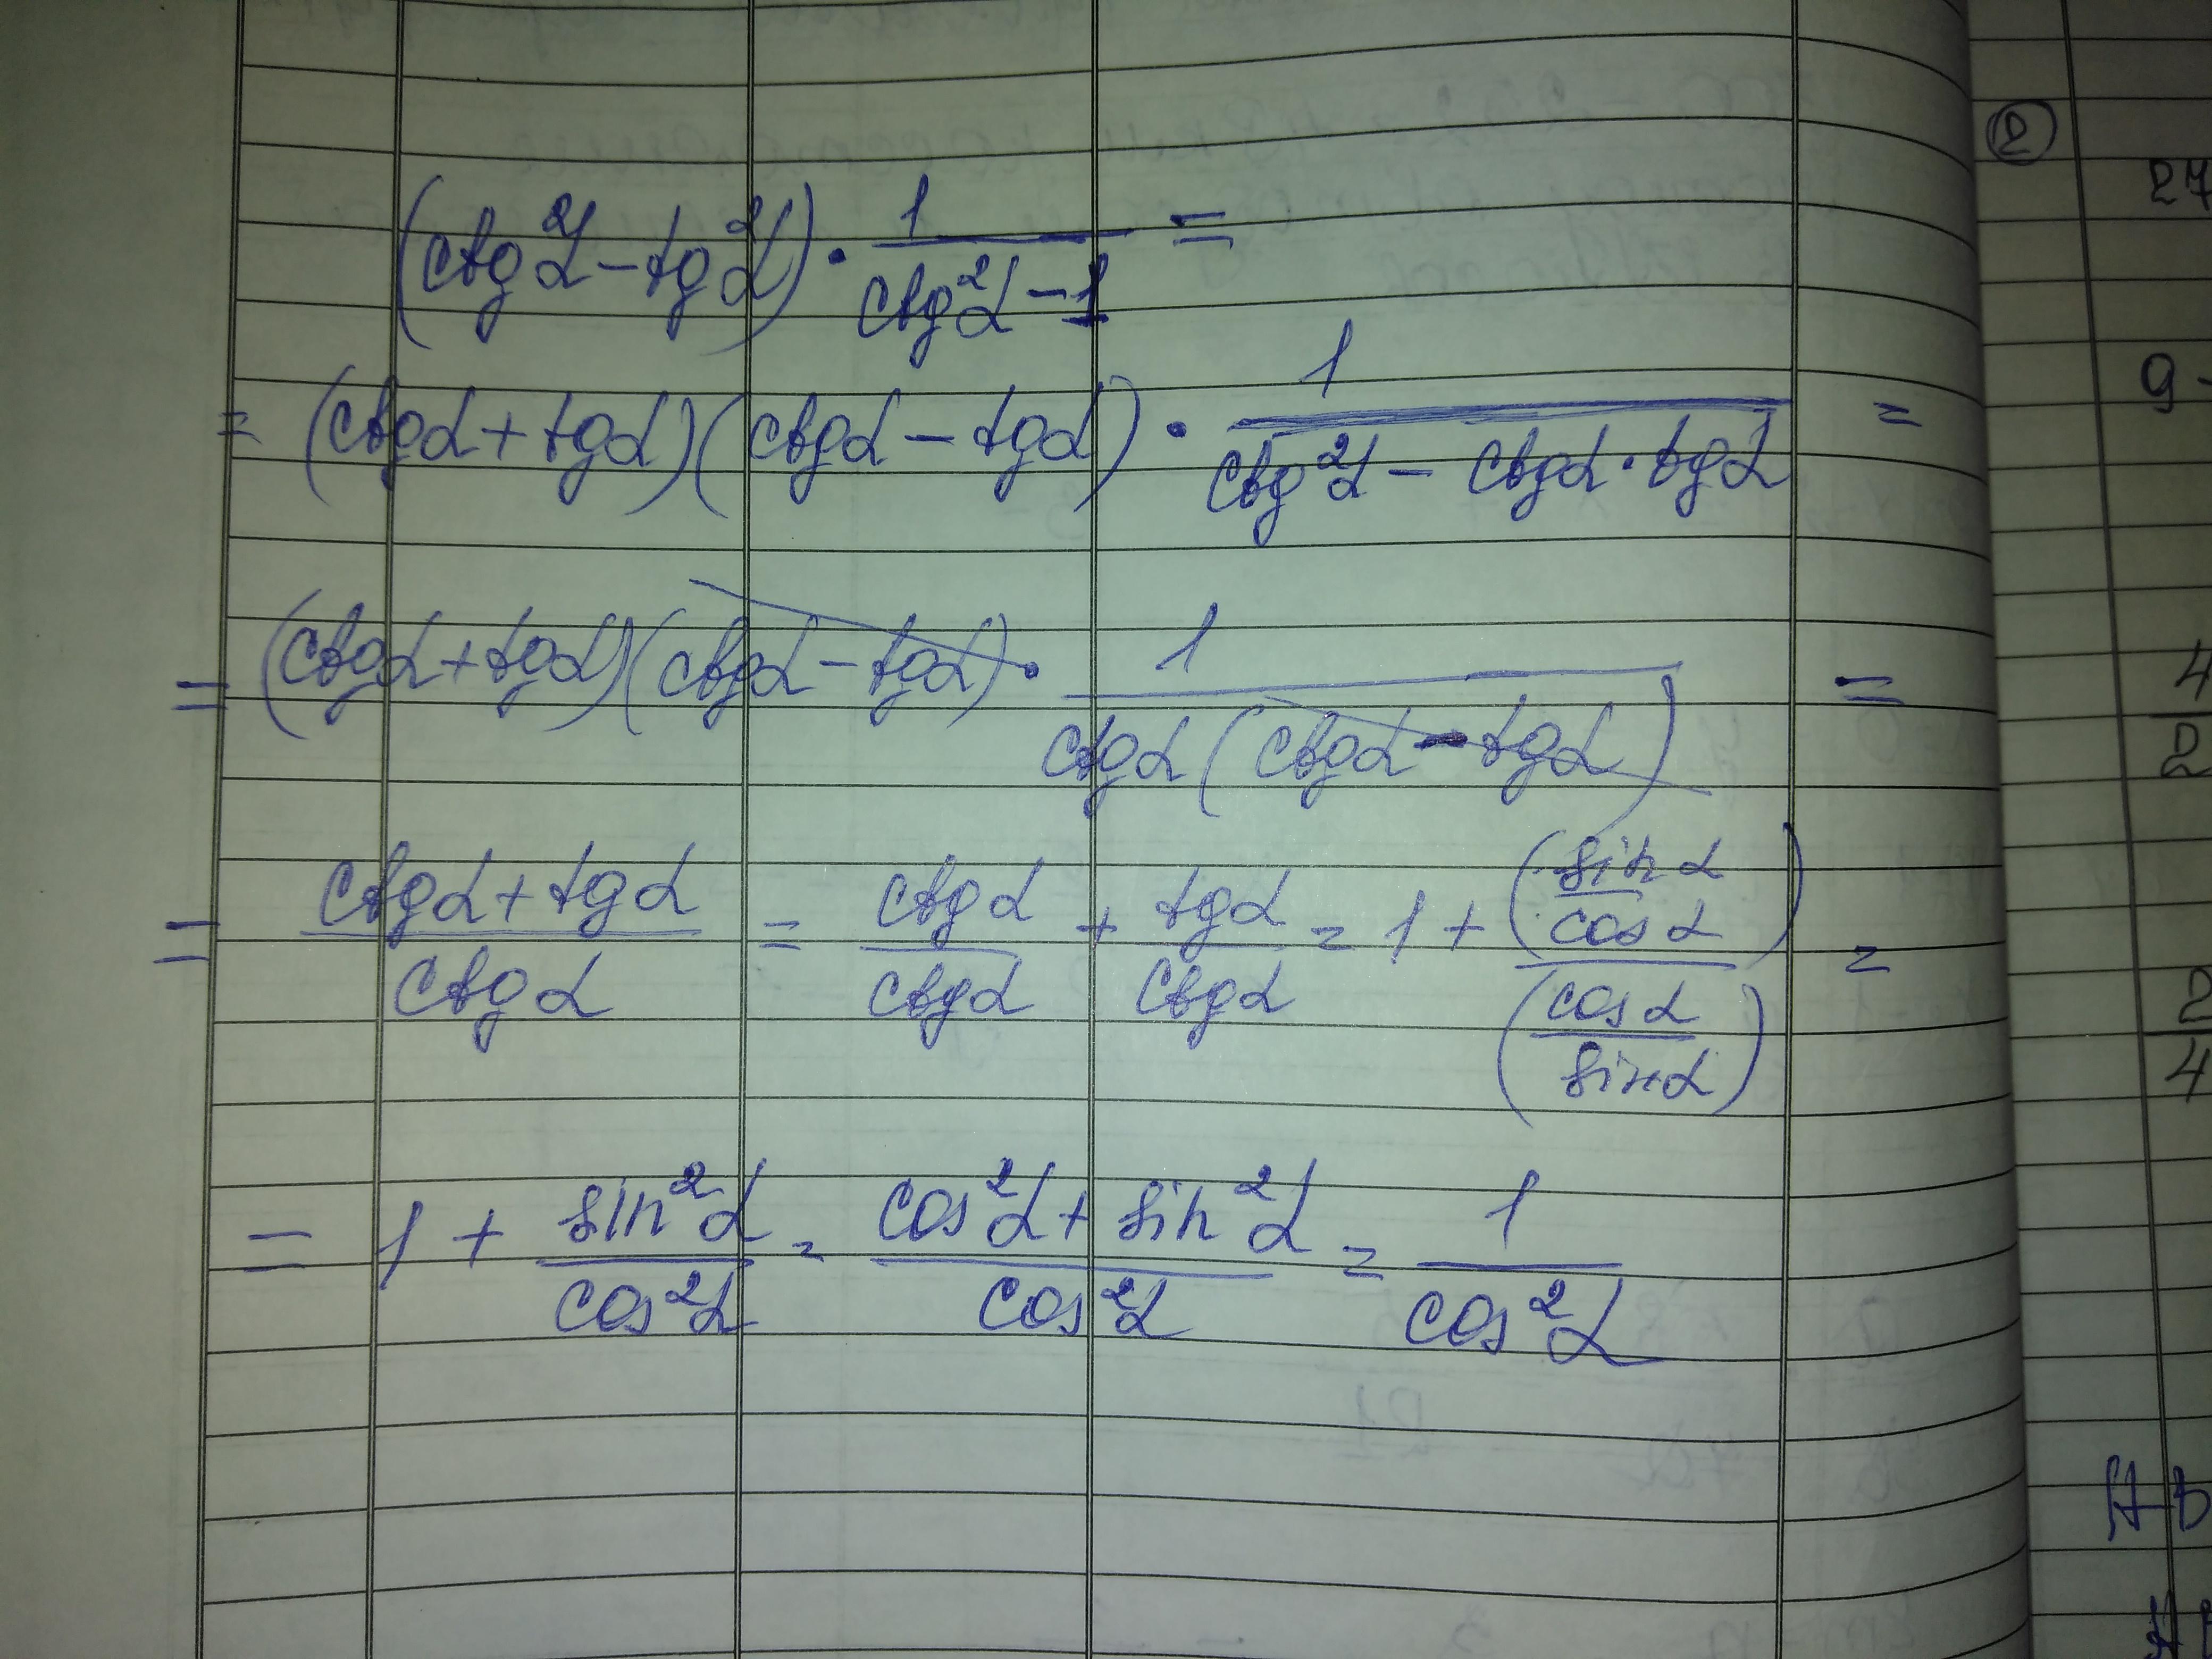 (ctg²α − tg²α) · 1/(ctg²α − 1) =
= (ctgα + tgα)(ctgα − tgα) · 1/(ctg²α − ctgα · tgα) =
= (ctgα + tgα)(ctgα − tgα) · 1/(ctgα(ctgα − tgα)) =
= (ctgα + tgα)/ctgα = ctgα/ctgα + tgα/ctgα = 1 + (sinα/cosα)/(cosα/sinα) =
= 1 + sin²α/cos²α = (cos²α + sin²α)/cos²α = 1/cos²α
②
27
9 -
4
2
2
4